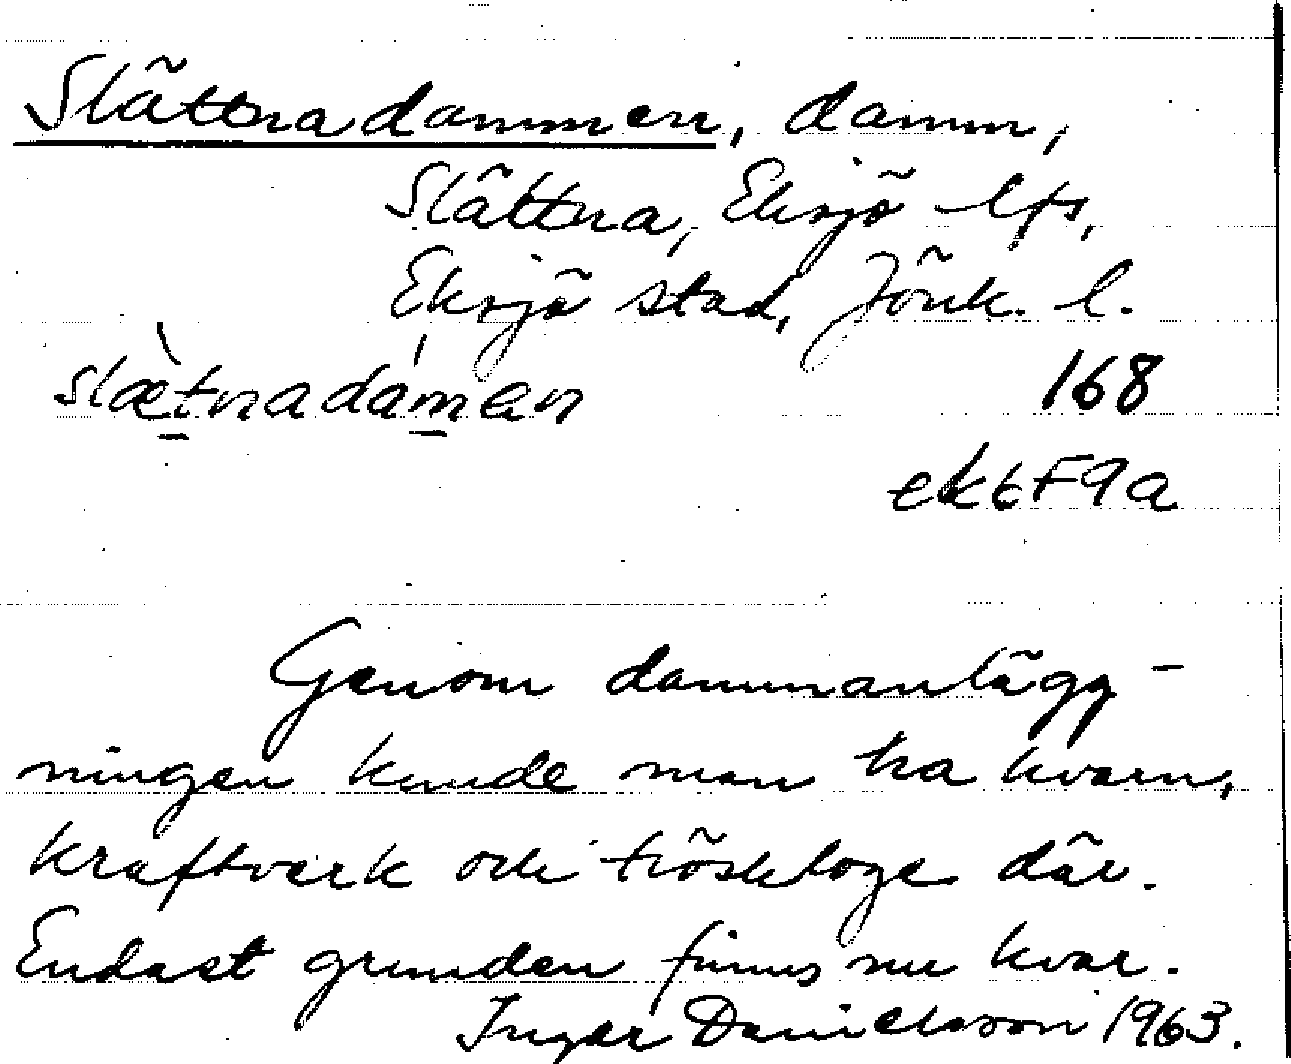 Slättnadammen, damm,
Slättna, Eksjö lfs,
Eksjö stad, Jönk. l.
slæ̀tnadámen
168
ek6F9a
Genom dammanlägg-
ningen kunde man ha kvarn,
kraftverk och tröskloge där.
Endast grunden finns nu kvar.
Inger Danielsson 1963.